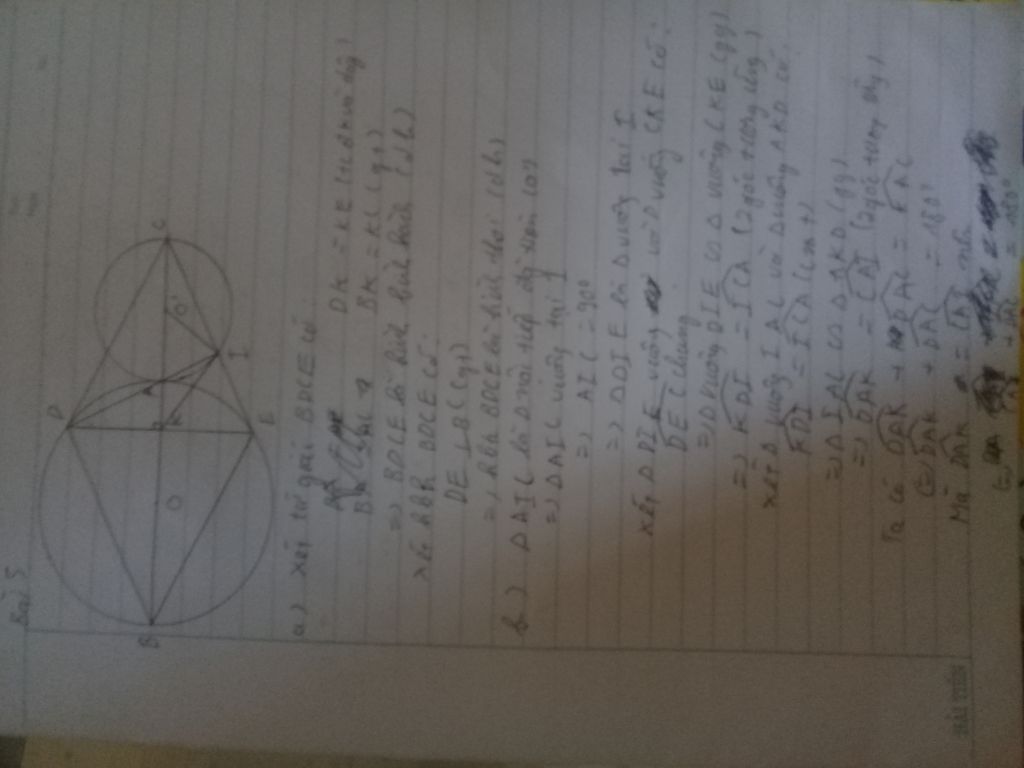 Bài 5
B
D
O
K
A
O'
C
I
E
a) Xét tứ giác BDCE có
DK = KE (t/c đk và dây)
BK = KC (gt)
=> BDCE là hình bình hành (dh)
Xét HBH BDCE có:
DE ⊥ BC (gt)
=> hbh BDCE là hình thoi (dh)
b) Δ AIC là Δ nội tiếp (O')
=> Δ AIC vuông tại I
=> AIC = 90°
=> Δ DIE là Δ vuông tại I
Xét Δ DIE vuông và Δ vuông CKE có:
DEC chung
=> Δ vuông DIE ∽ Δ vuông CKE (gg)
=> KDI = ICA (2 góc tương ứng)
Xét Δ vuông IAC và Δ vuông AKD có:
KDI = ICA (cmt)
=> Δ IAC ∽ Δ AKD (gg)
=> DAK = CAI (2 góc tương ứng)
Ta có DAK + DAC = KAC
DAK + DAC = 180°
Mà DAK = CAI nên
+ DAC = 180°
HẢI TIẾN